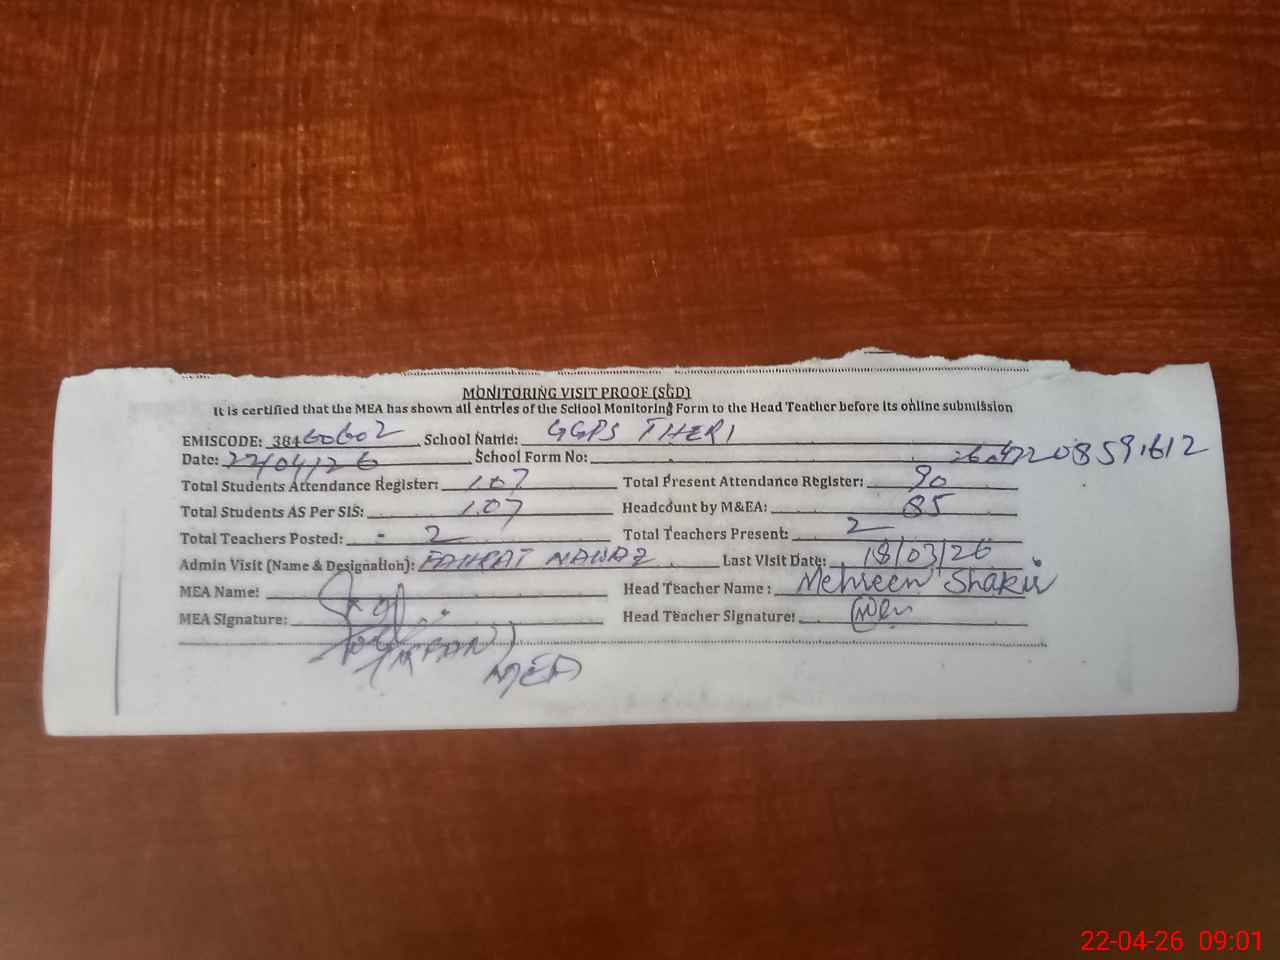 MONITORING VISIT PROOF (SGD)
It is certified that the MEA has shown all entries of the School Monitoring Form to the Head Teacher before its online submission
EMISCODE: 38460602 School Name: GGPS THERI
Date: 22/04/26 School Form No: 220859,1612
Total Students Attendance Register: 107 Total Present Attendance Register: 90
Total Students AS Per SIS: 107 Headcount by M&EA: 85
Total Teachers Posted: - 2 Total Teachers Present: 2
Admin Visit (Name & Designation): NAWAZ Last Visit Date: 18/03/26
MEA Name: Head Teacher Name : Mehreen Shakir
MEA Signature: Head Teacher Signature:
MEA
22-04-26 09:01